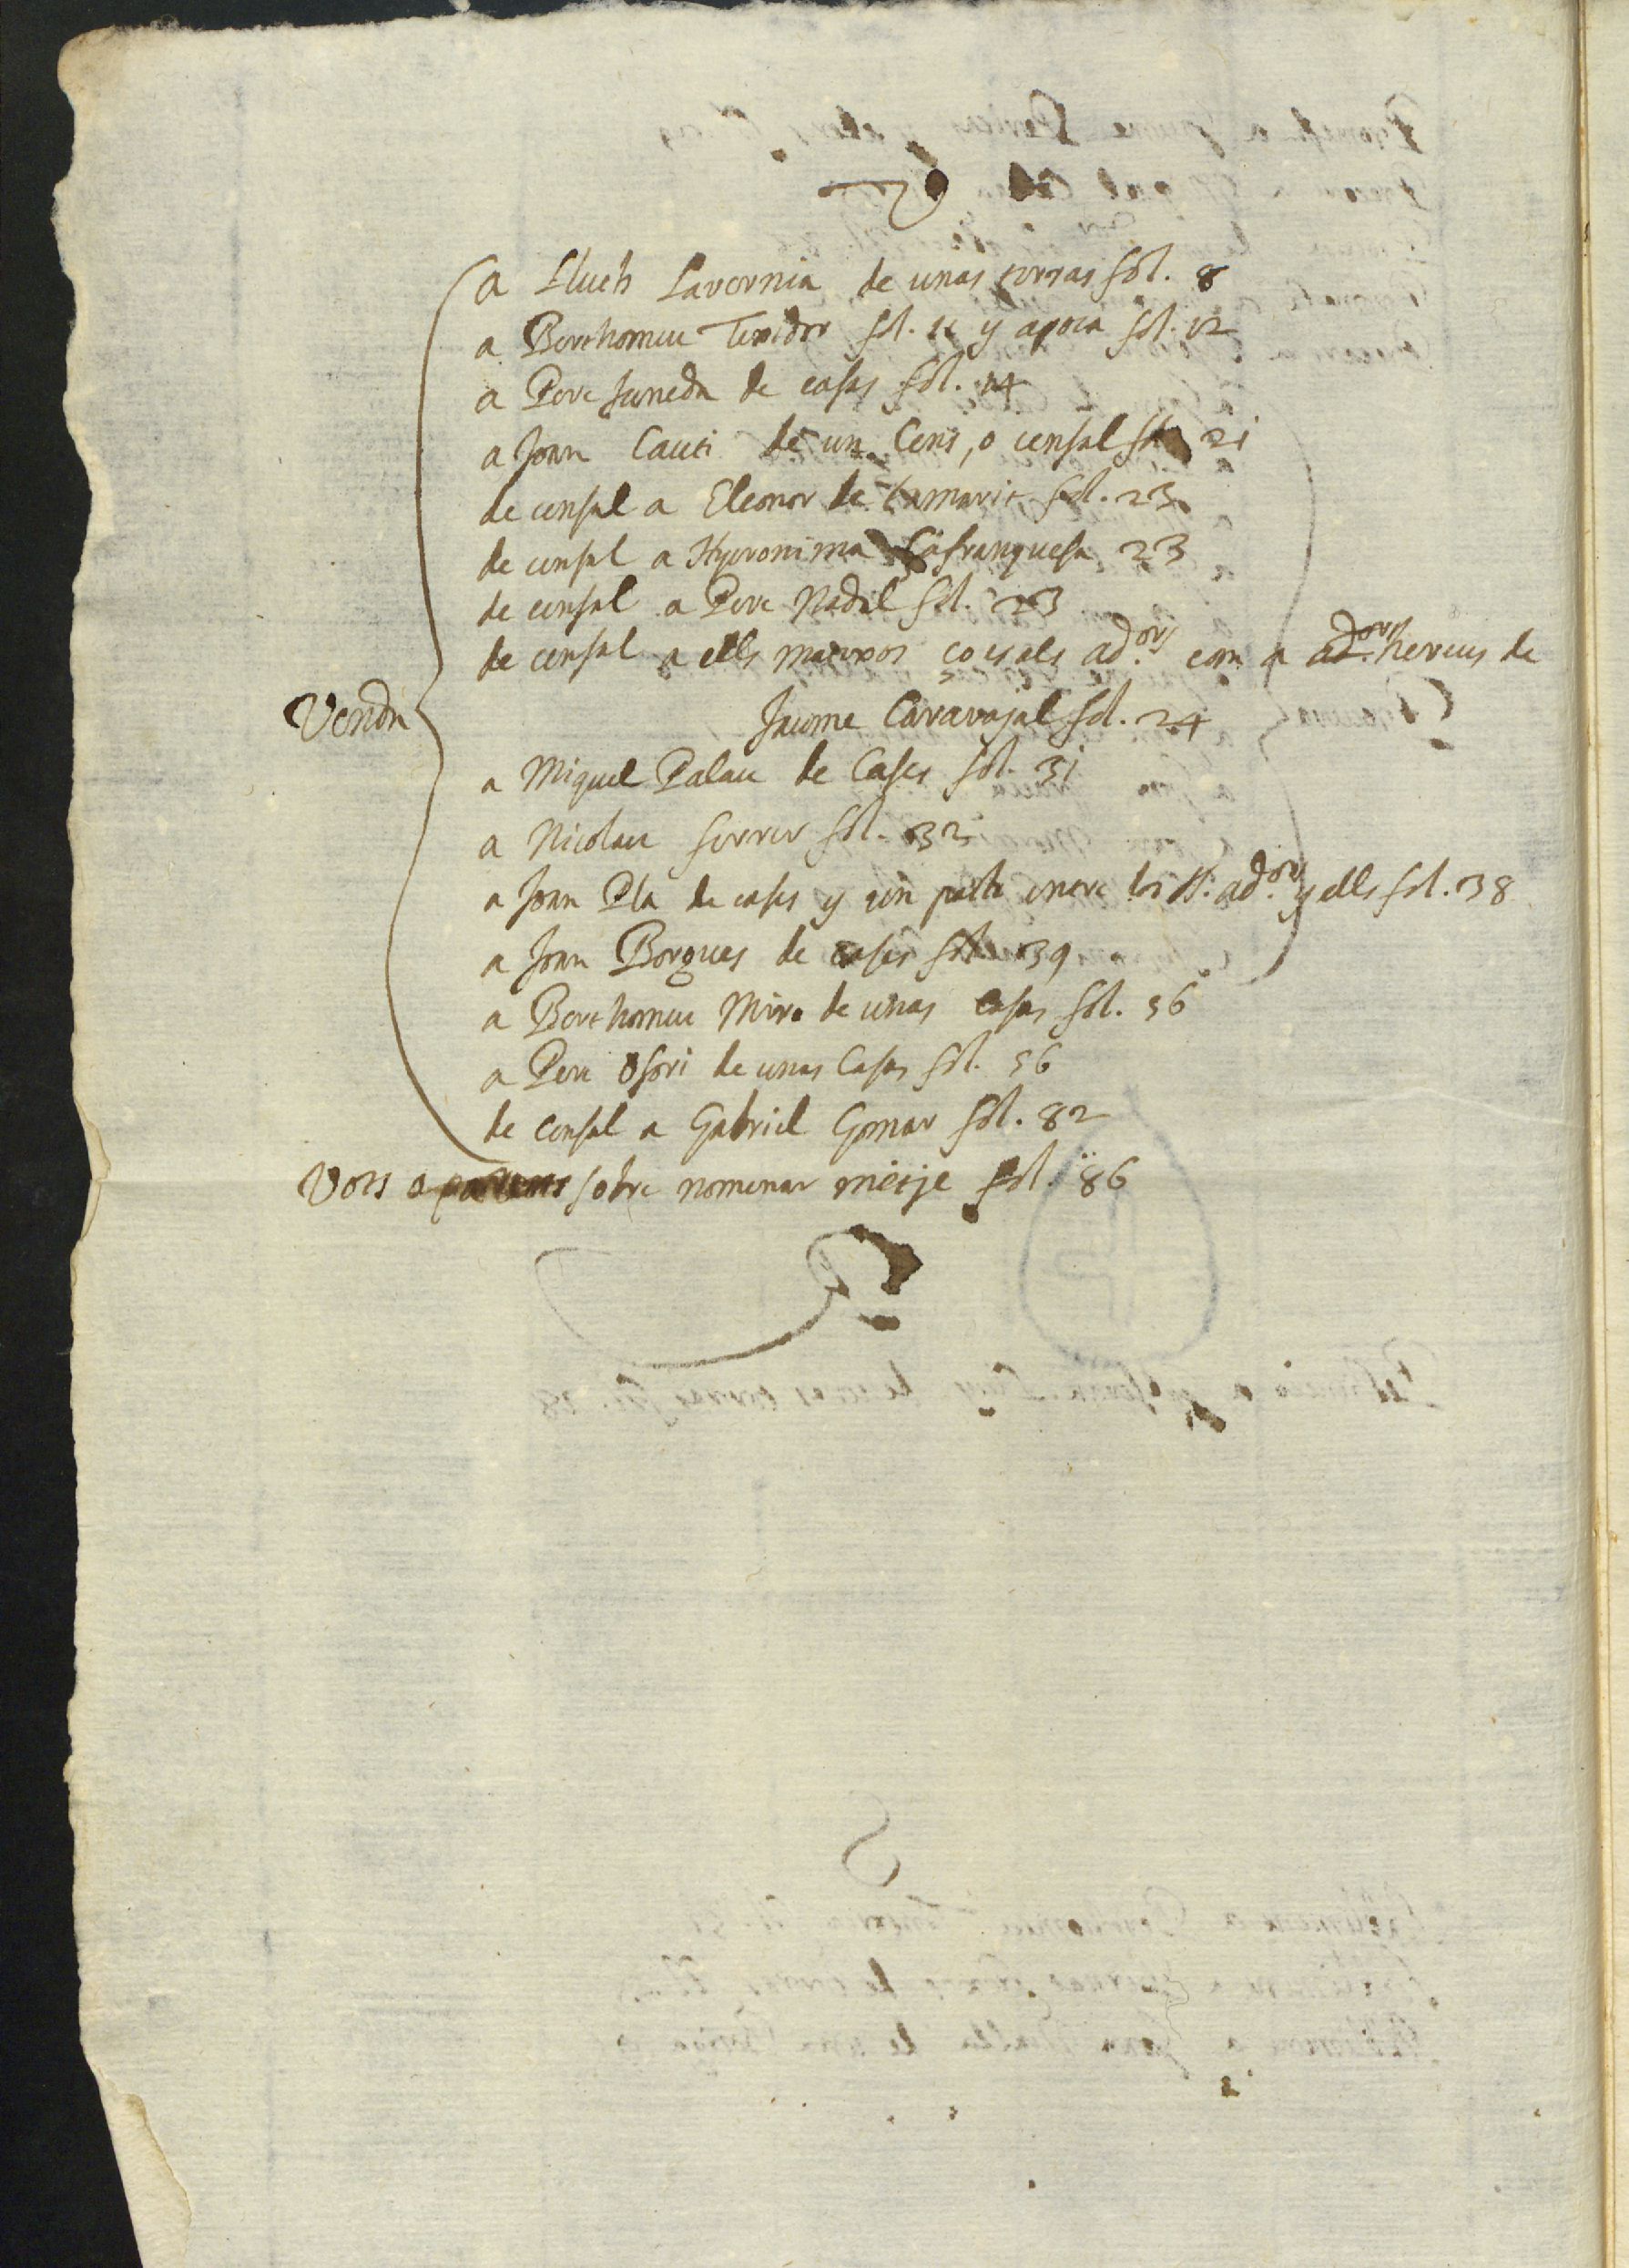 V
a Lluch Lavernia de unas terras fol. 8
a Berthomeu Texidor fol. 11 y apoca fol. 12
a Pere Juneda de casas fol. 14
a Joan Cauti de un Cens, o censal fol 21
de censal a Eleonor de Camarit fol. 23
de censal a Hyeronima Çafranquesa 23
de censal a Pere Nadal fol. 23
de censal a ells matexos ço es als ad.ors com a ad.ors hereus de
Venda Jaume Caravajal fol. 24
a Miquel Palau de Cases fol. 31
a Nicolau ferrer fol. 32
a Joan Pla de cases y un pacte entre los SS. ad.ors y ells fol. 38
a Joan Borgues de cases fol 39
a Berthomeu Miro de unas casas fol. 56
a Pere Osori de unas Casas fol. 56
de Censal a Gabriel Gomar fol. 82
Vots o sobre nomenar metje fol. 86